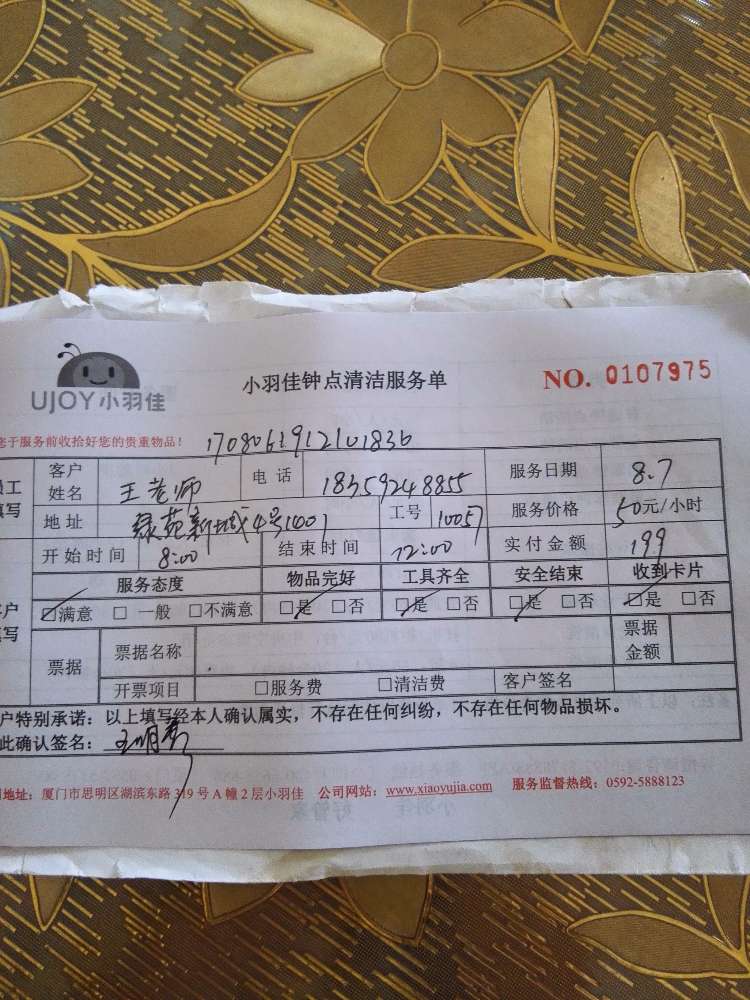 UJOY小羽佳
小羽佳钟点清洁服务单
NO. 0107975
您于服务前收拾好您的贵重物品！
客户姓名 王老师 电话 18359248855 服务日期 8.7
地址 绿苑新城4号1001 工号 10057 服务价格 50元/小时
开始时间 8:00 结束时间 12:00 实付金额 199
服务态度 物品完好 工具齐全 安全结束 收到卡片
☑满意 □一般 □不满意 ☑是 □否 ☑是 □否 ☑是 □否 ☑是 □否
票据 票据名称 票据金额
开票项目 □服务费 □清洁费 客户签名
户特别承诺：以上填写经本人确认属实，不存在任何纠纷，不存在任何物品损坏。
此确认签名：
地址：厦门市思明区湖滨东路319号A幢2层小羽佳 公司网站：www.xiaoyujia.com 服务监督热线：0592-5888123